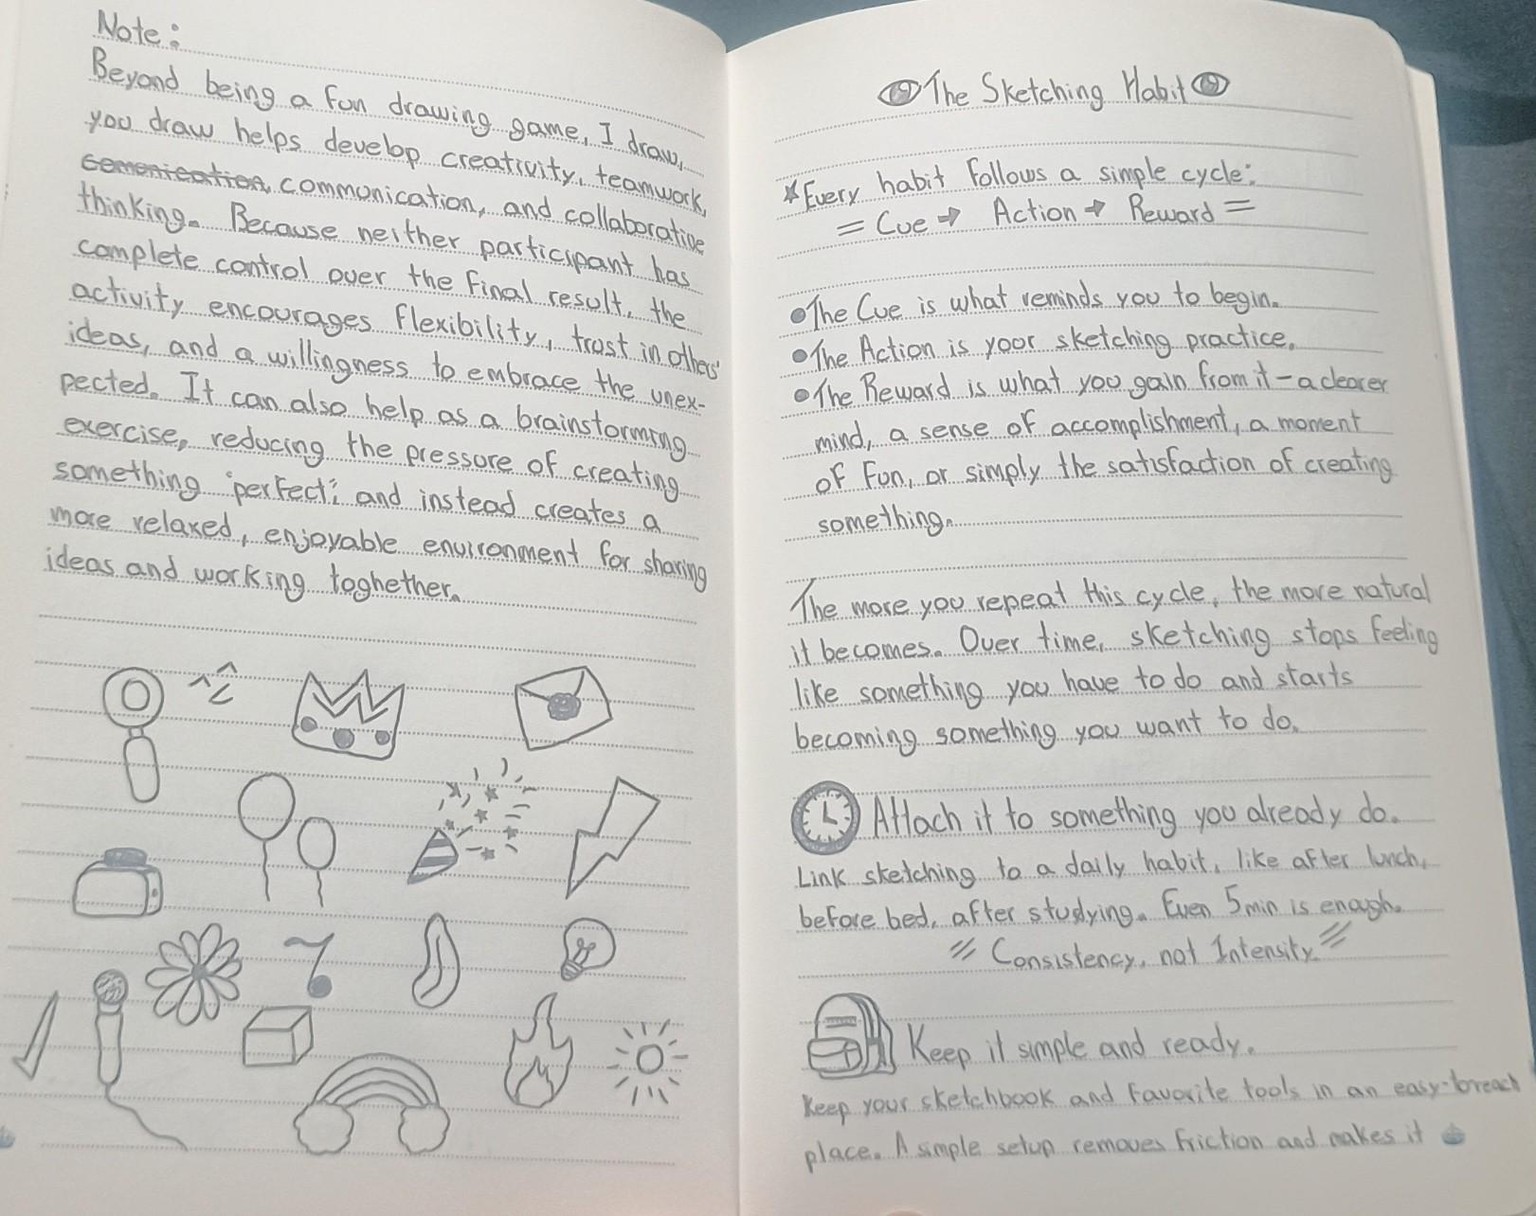 Note:
Beyond being a fun drawing game, I draw,
you draw helps develop creativity, teamwork,
comenication, communication, and collaborative
thinking. Because neither participant has
complete control over the final result, the
activity encourages flexibility, trust in others'
ideas, and a willingness to embrace the unex-
pected. It can also help as a brainstorming
exercise, reducing the pressure of creating
something 'perfect', and instead creates a
more relaxed, enjoyable environment for sharing
ideas and working toghether.
The Sketching Habit
*Every habit follows a simple cycle:
= Cue → Action → Reward =
•The Cue is what reminds you to begin.
•The Action is your sketching practice.
•The Reward is what you gain from it-a clearer
mind, a sense of accomplishment, a moment
of fun, or simply the satisfaction of creating
something.
The more you repeat this cycle, the more natural
it becomes. Over time, sketching stops feeling
like something you have to do and starts
becoming something you want to do.
Attach it to something you already do.
Link sketching to a daily habit, like after lunch,
before bed, after studying. Even 5 min is enough.
// Consistency, not Intensity. //
Keep it simple and ready.
Keep your sketchbook and favorite tools in an easy-to-reach
place. A simple setup removes friction and makes it